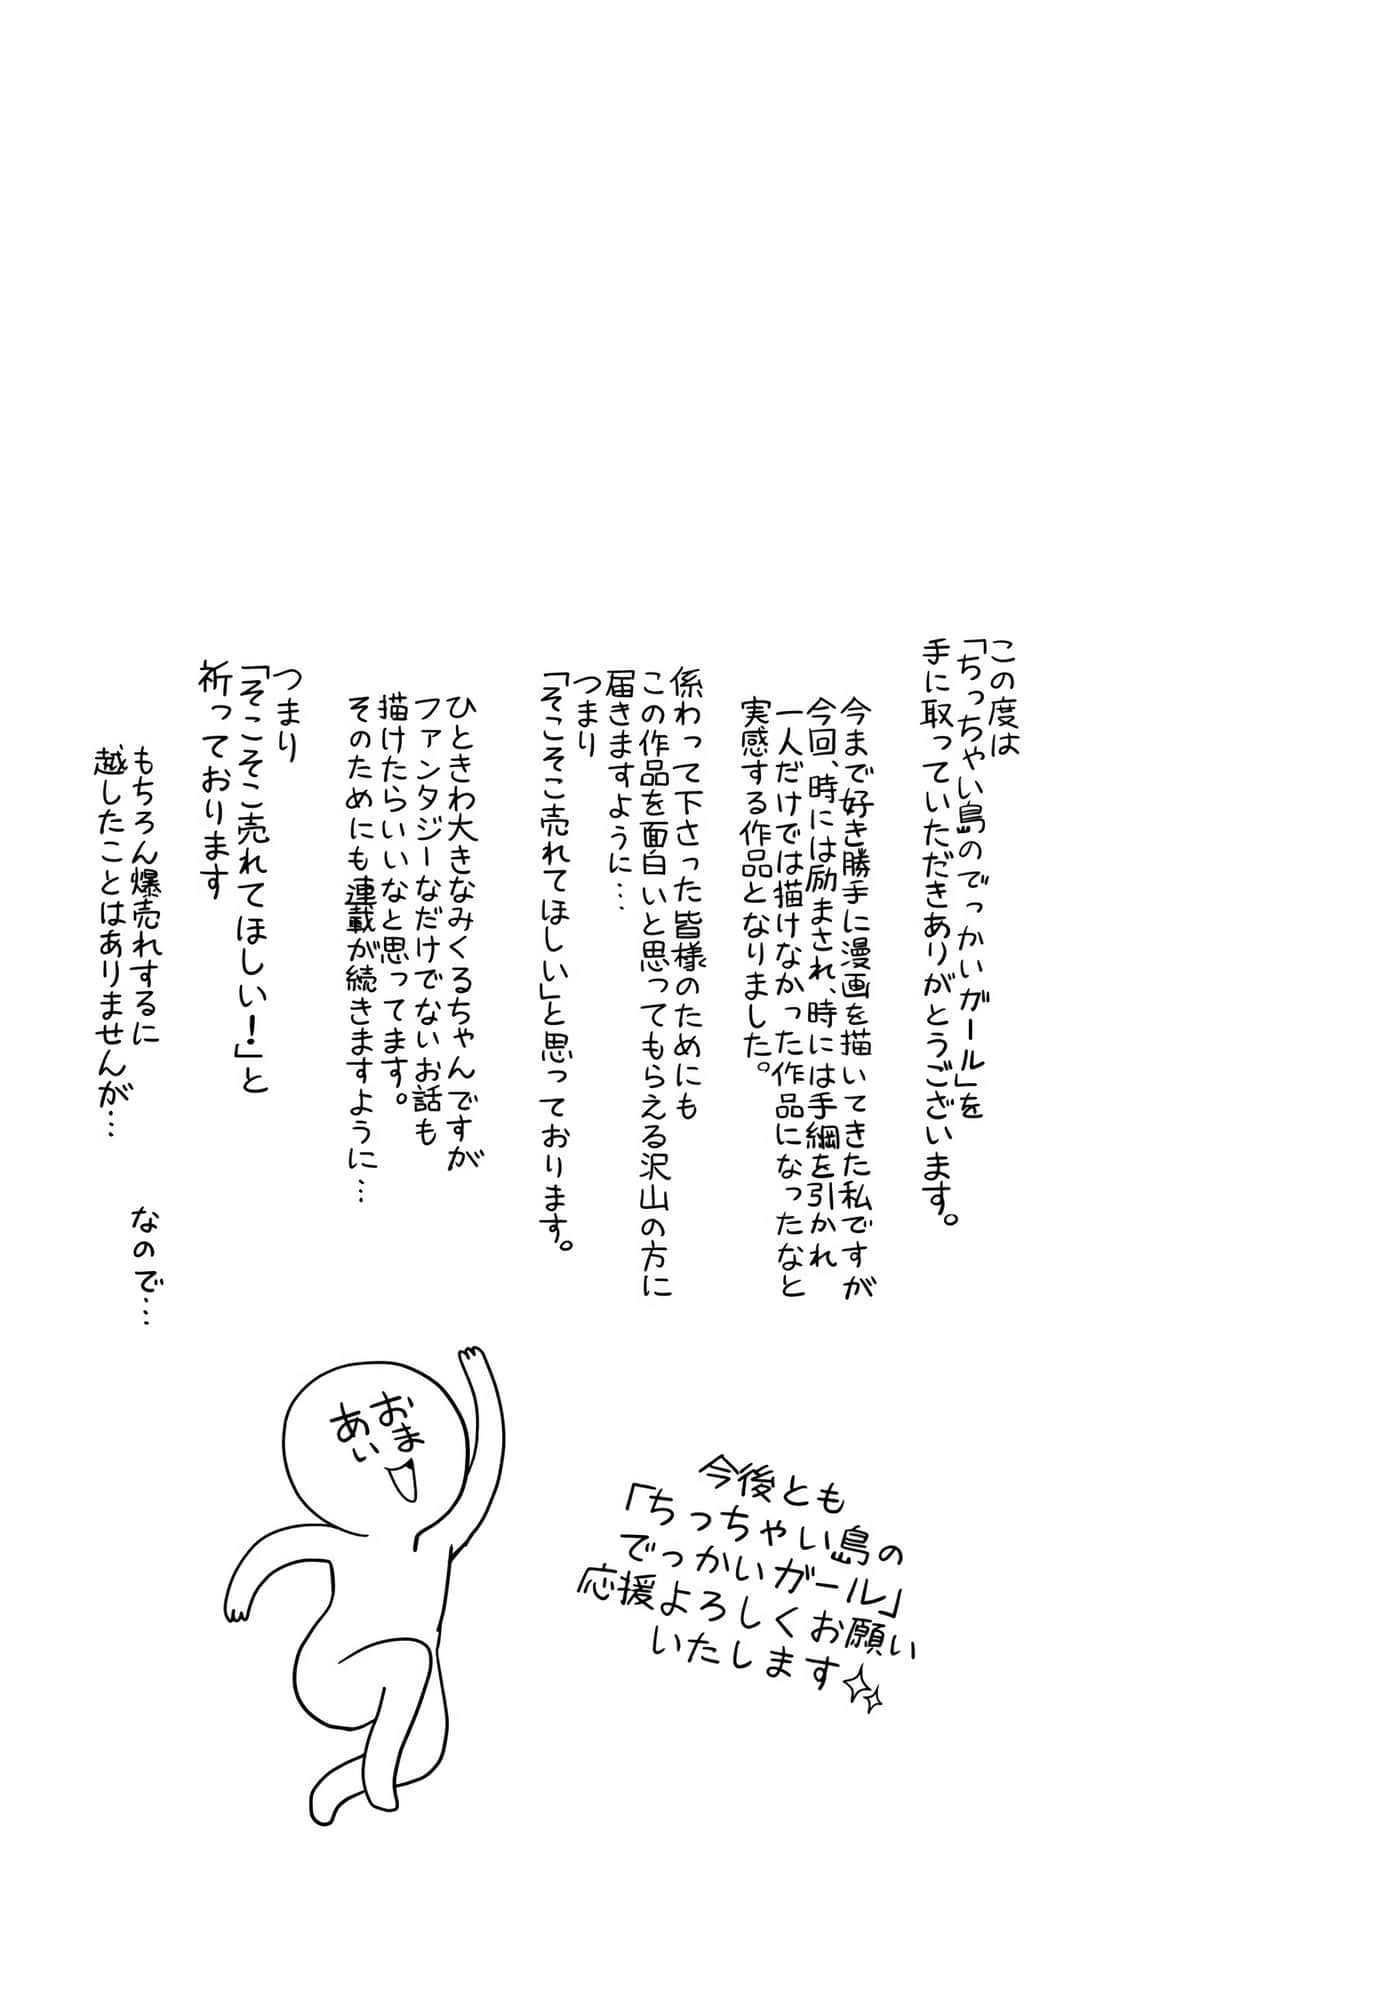 この度は
「ちっちゃい島のでっかいガール」を
手に取っていただきありがとうございます。
今まで好き勝手に漫画を描いてきた私ですが
今回、時には励まされ、時には手綱を引かれ
一人だけでは描けなかった作品になったなと
実感する作品となりました。
係わって下さった皆様のためにも
この作品を面白いと思ってもらえる沢山の方に
届きますように…
つまり
「そこそこ売れてほしい」と思っております。
ひときわ大きなみくるちゃんですが
ファンタジーなだけでないお話も
描けたらいいなと思ってます。
そのためにも連載が続きますように…
つまり
「そこそこ売れてほしい！」と
祈っております
もちろん爆売れするに
越したことはありませんが…
なので…
おま
あい
今後とも
「ちっちゃい島の
でっかいガール」
応援よろしくお願い
いたします